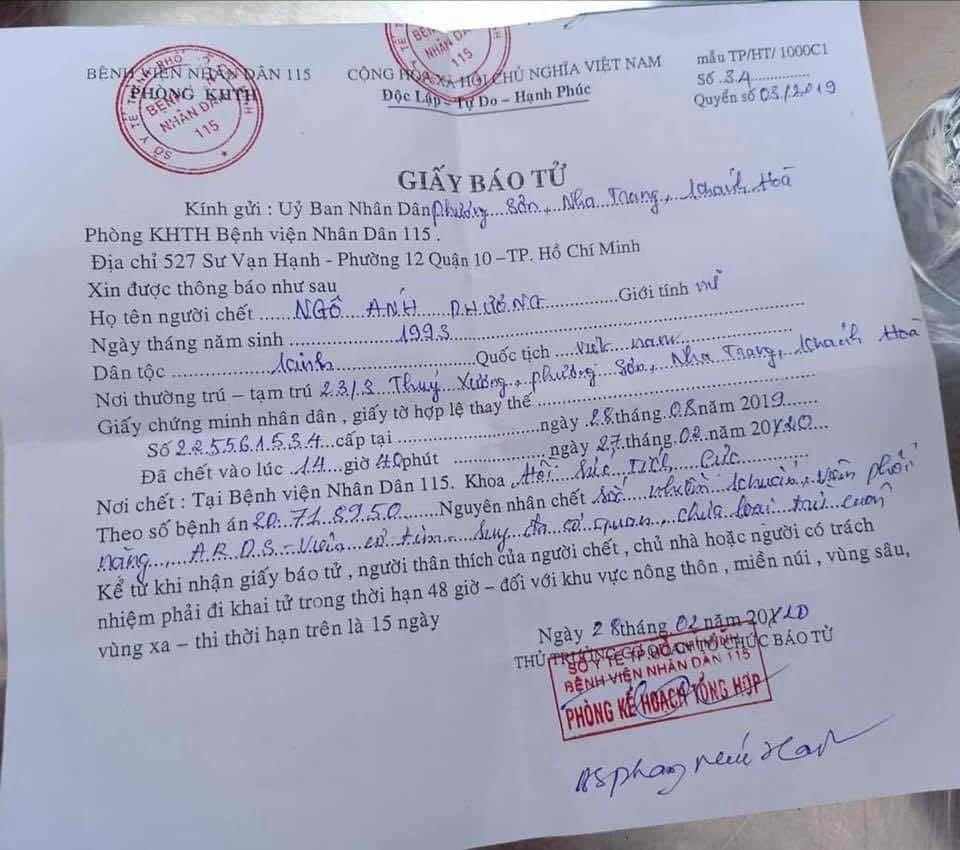 BỆNH VIỆN NHÂN DÂN 115
PHÒNG KHTH
CỘNG HÒA XÃ HỘI CHỦ NGHĨA VIỆT NAM
Độc Lập – Tự Do – Hạnh Phúc
mẫu TP/HT/ 1000C1
Số .34..............
Quyển số 03/2019
SỞ Y TẾ THÀNH PHỐ
BỆNH VIỆN
NHÂN DÂN
115
NHÂN DÂN
115
GIẤY BÁO TỬ
Kính gửi : Uỷ Ban Nhân Dân phương Sơn, Nha Trang, Khánh Hoà
Phòng KHTH Bệnh viện Nhân Dân 115 .
Địa chỉ 527 Sư Vạn Hạnh - Phường 12 Quận 10 –TP. Hồ Chí Minh
Xin được thông báo như sau
Họ tên người chết ..... NGÔ ANH PHƯƠNG .............. Giới tính nữ
Ngày tháng năm sinh ................ 1993 ................
Dân tộc ................ kinh ................ Quốc tịch Việt nam
Nơi thường trú – tạm trú 23/3 Thuỷ Xưởng, phương Sơn, Nha Trang, Khánh Hoà
Giấy chứng minh nhân dân , giấy tờ hợp lệ thay thế ................
Số 225561534 cấp tại ................ ngày .28.tháng.08.năm 2019.......
Đã chết vào lúc .14... giờ 40phút ................ ngày 27.tháng.02.năm 2020...
Nơi chết : Tại Bệnh viện Nhân Dân 115. Khoa Hồi Sức Tích Cực
Theo số bệnh án 20.718950 ........ Nguyên nhân chết Sốc nhiễm khuẩn, Viêm phổi
nặng, A.R.D.S – Viêm cơ tim, Suy đa cơ quan, chưa loại trừ
Kể từ khi nhận giấy báo tử , người thân thích của người chết , chủ nhà hoặc người có trách
nhiệm phải đi khai tử trong thời hạn 48 giờ – đối với khu vực nông thôn , miền núi , vùng sâu,
vùng xa – thi thời hạn trên là 15 ngày
Ngày 28tháng 02 năm 2020
THỦ TRƯỞNG CƠ QUAN TỔ CHỨC BÁO TỬ
SỞ Y TẾ TP HỒ CHÍ MINH
BỆNH VIỆN NHÂN DÂN 115
PHÒNG KẾ HOẠCH TỔNG HỢP